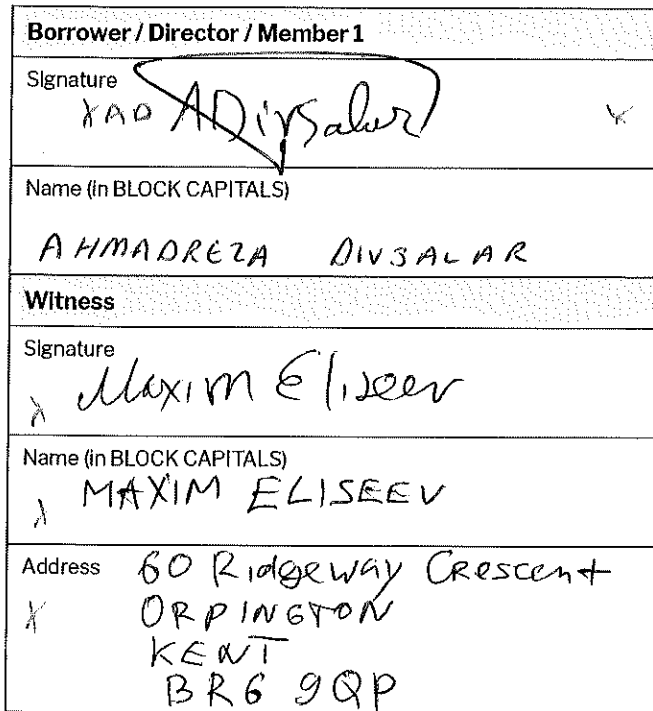 Borrower / Director / Member 1
Signature
XAD ADivsalar X
Name (in BLOCK CAPITALS)
AHMADREZA DIVSALAR
Witness
Signature
X Maxim Eliseev
Name (in BLOCK CAPITALS)
X MAXIM ELISEEV
Address 60 Ridgeway Crescent
X ORPINGTON
KENT
BR6 9QP